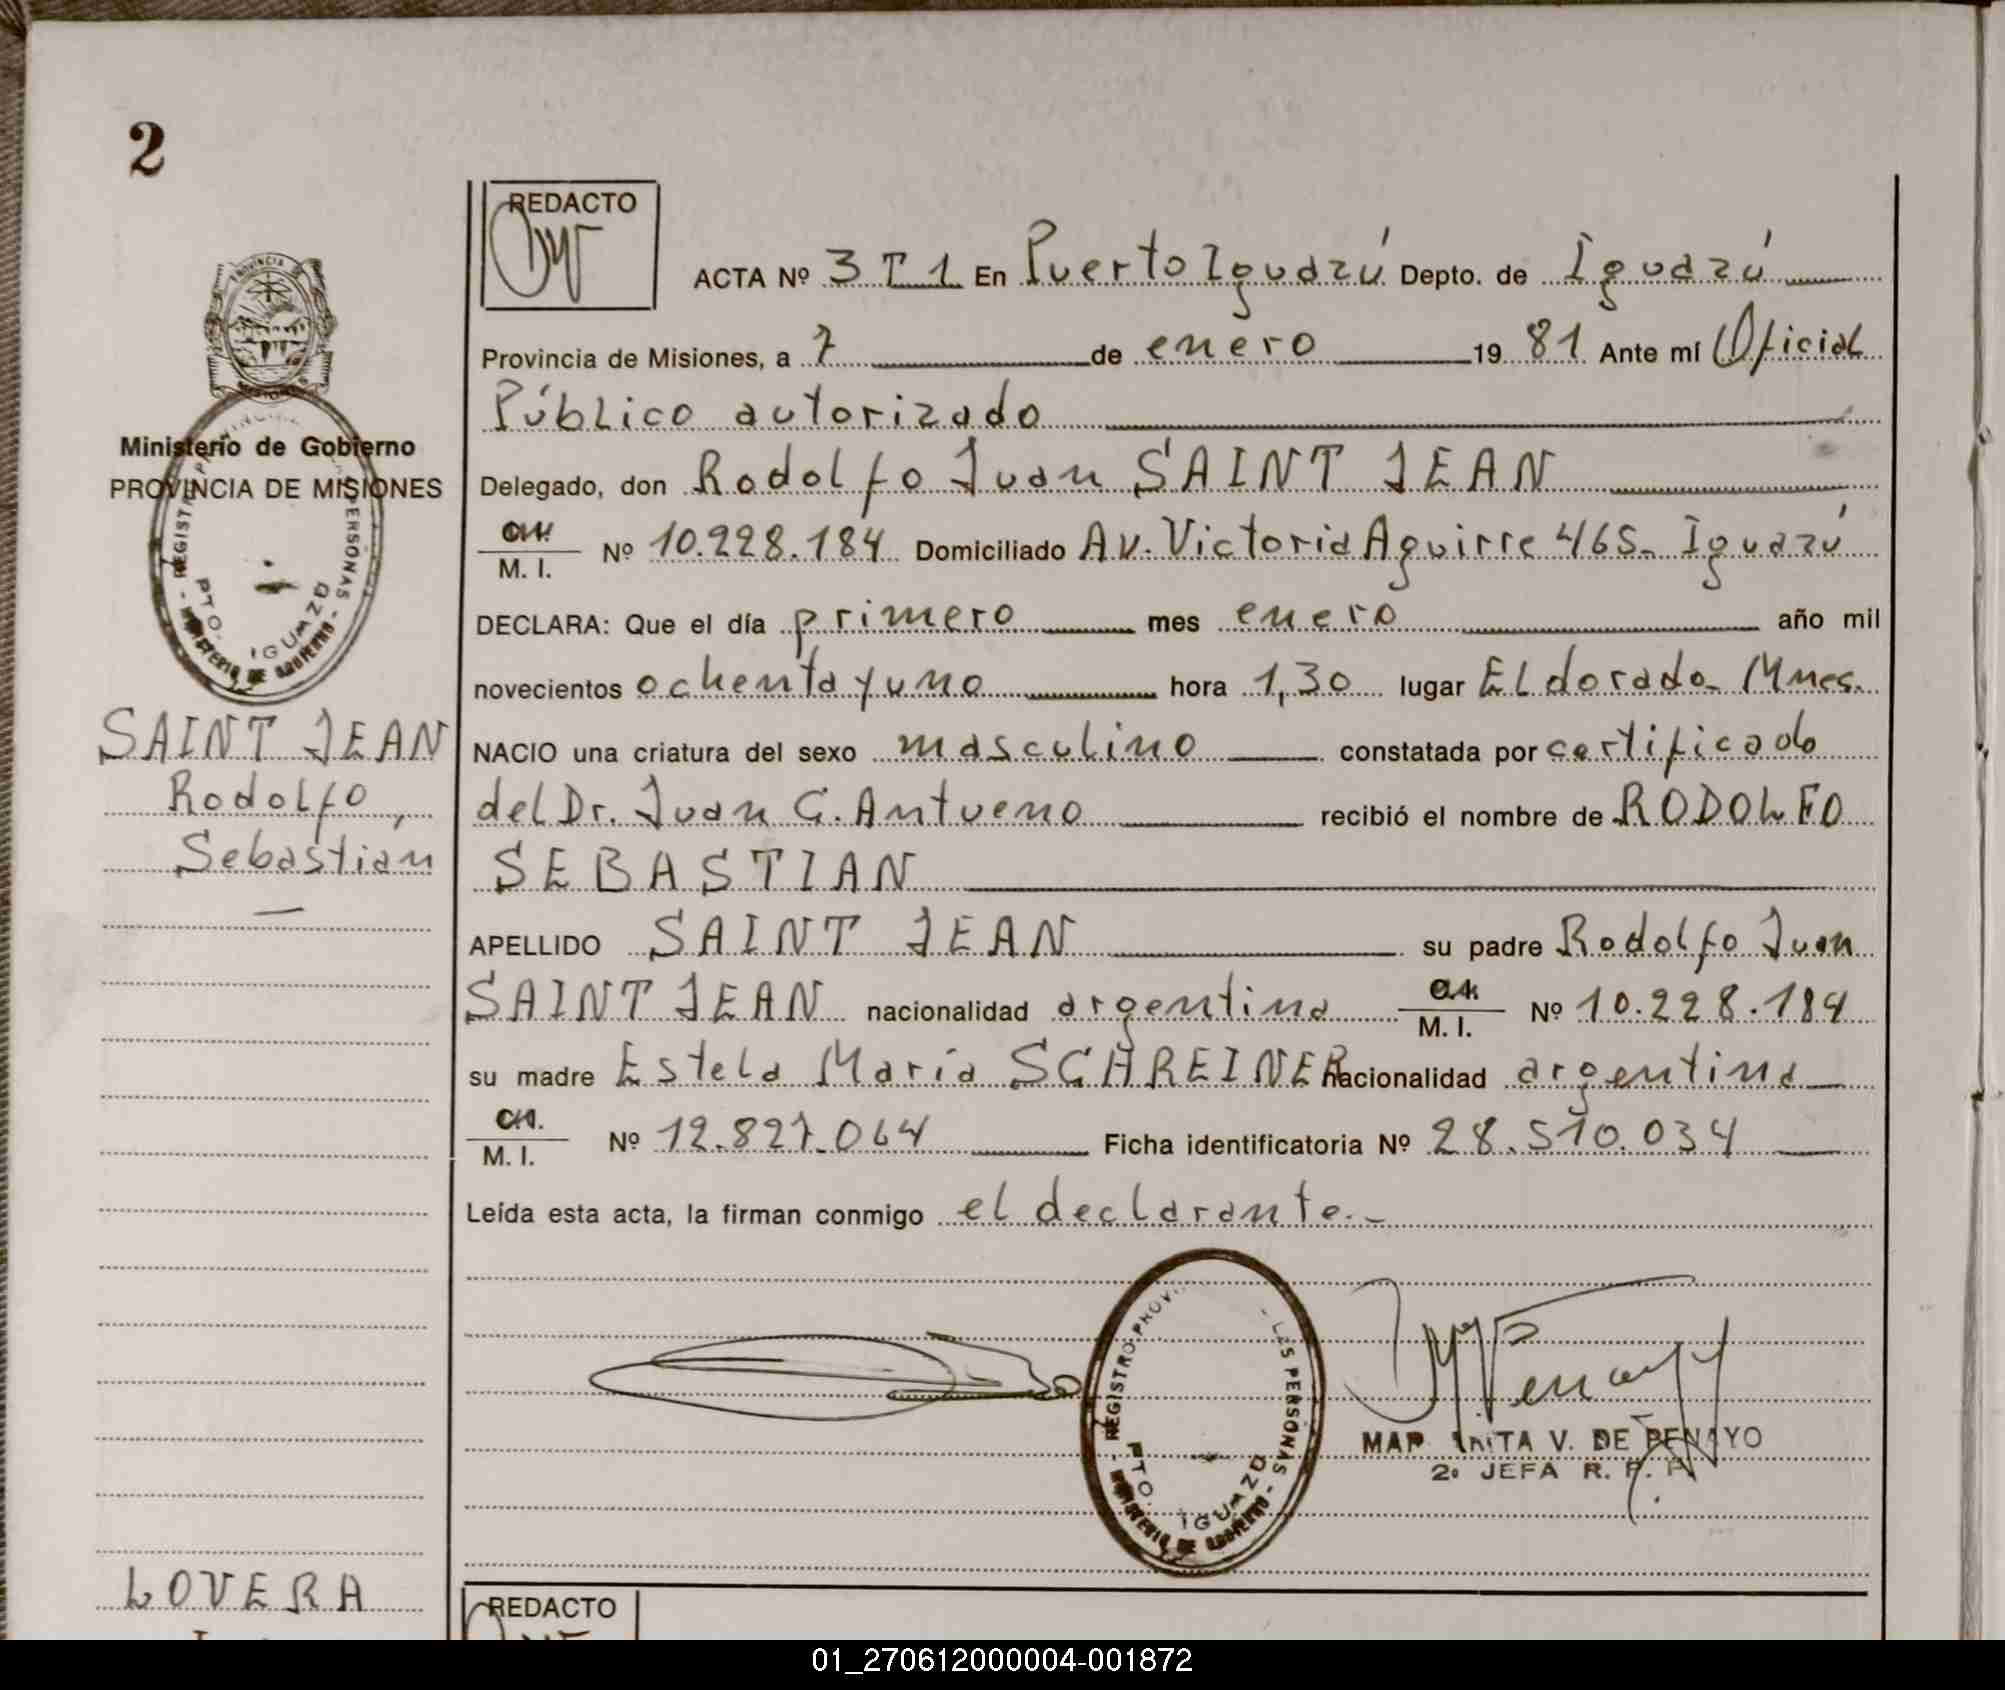 2
REDACTO
ACTA Nº 3 T 1 En Puerto Iguazú Depto. de Iguazú
Provincia de Misiones, a 7 de enero 1981 Ante mí Oficial
Público autorizado
Delegado, don Rodolfo Juan SAINT JEAN
M. I. Nº 10.228.184 Domiciliado Av. Victoria Aguirre 465- Iguazú
DECLARA: Que el día primero mes enero año mil
novecientos ochenta y uno hora 1,30 lugar Eldorado- Mnes.
NACIO una criatura del sexo masculino constatada por certificado
del Dr. Juan C. Antueno recibió el nombre de RODOLFO
SEBASTIAN
APELLIDO SAINT JEAN su padre Rodolfo Juan
SAINT JEAN nacionalidad argentina M. I. Nº 10.228.184
su madre Estela María SCHREINER nacionalidad argentina
M. I. Nº 12.827.064 Ficha identificatoria Nº 28.510.034
Leída esta acta, la firman conmigo el declarante.-
PROVINCIA DE MISIONES
Ministerio de Gobierno
PROVINCIA DE MISIONES
REGISTRO PERSONAS
PTO. IGUAZU
MINISTERIO DE GOBIERNO
SAINT JEAN
Rodolfo
Sebastián
REGISTRO PROV. LAS PERSONAS
PTO. IGUAZU
MINISTERIO DE GOBIERNO
V. DE PENAYO
2ª JEFA R. P. P.
LOVERA
REDACTO
01_270612000004-001872